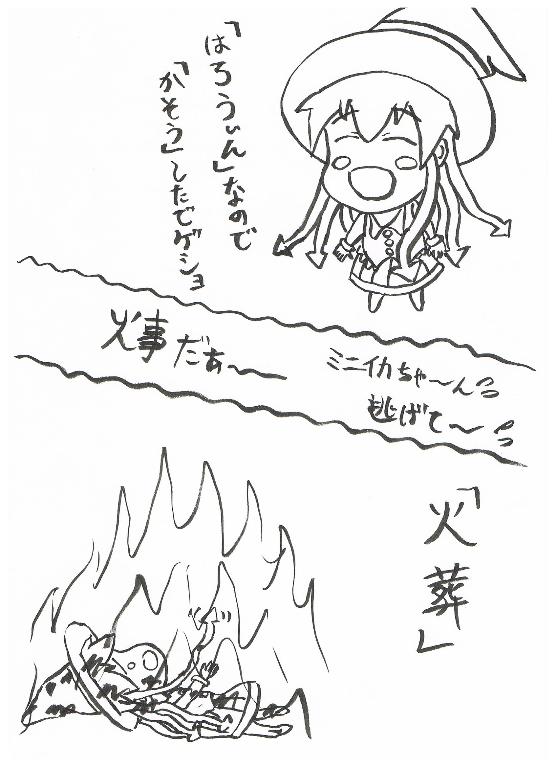 「はろうぃん」なので
「かそう」したでゲショ
火事だぁ〜
ミニイカちゃ〜ん!!
逃げて〜!!
「火葬」